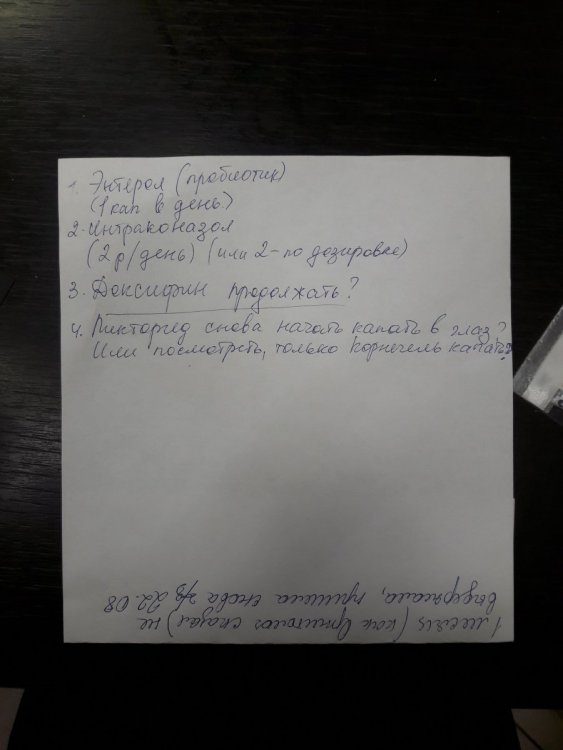 1. Энтерол (пробиотик)
(1 кап в день)
2. Интраконазол
(2 р/день) (или 2 - по дозировке)
3. Доксифин продолжать?
4. Пикторид снова начать капать в глаз?
Или посмотреть, только корнегель капать?
1 месяц (как Ариполов сказал) не
выдержала, пришла снова 22.08